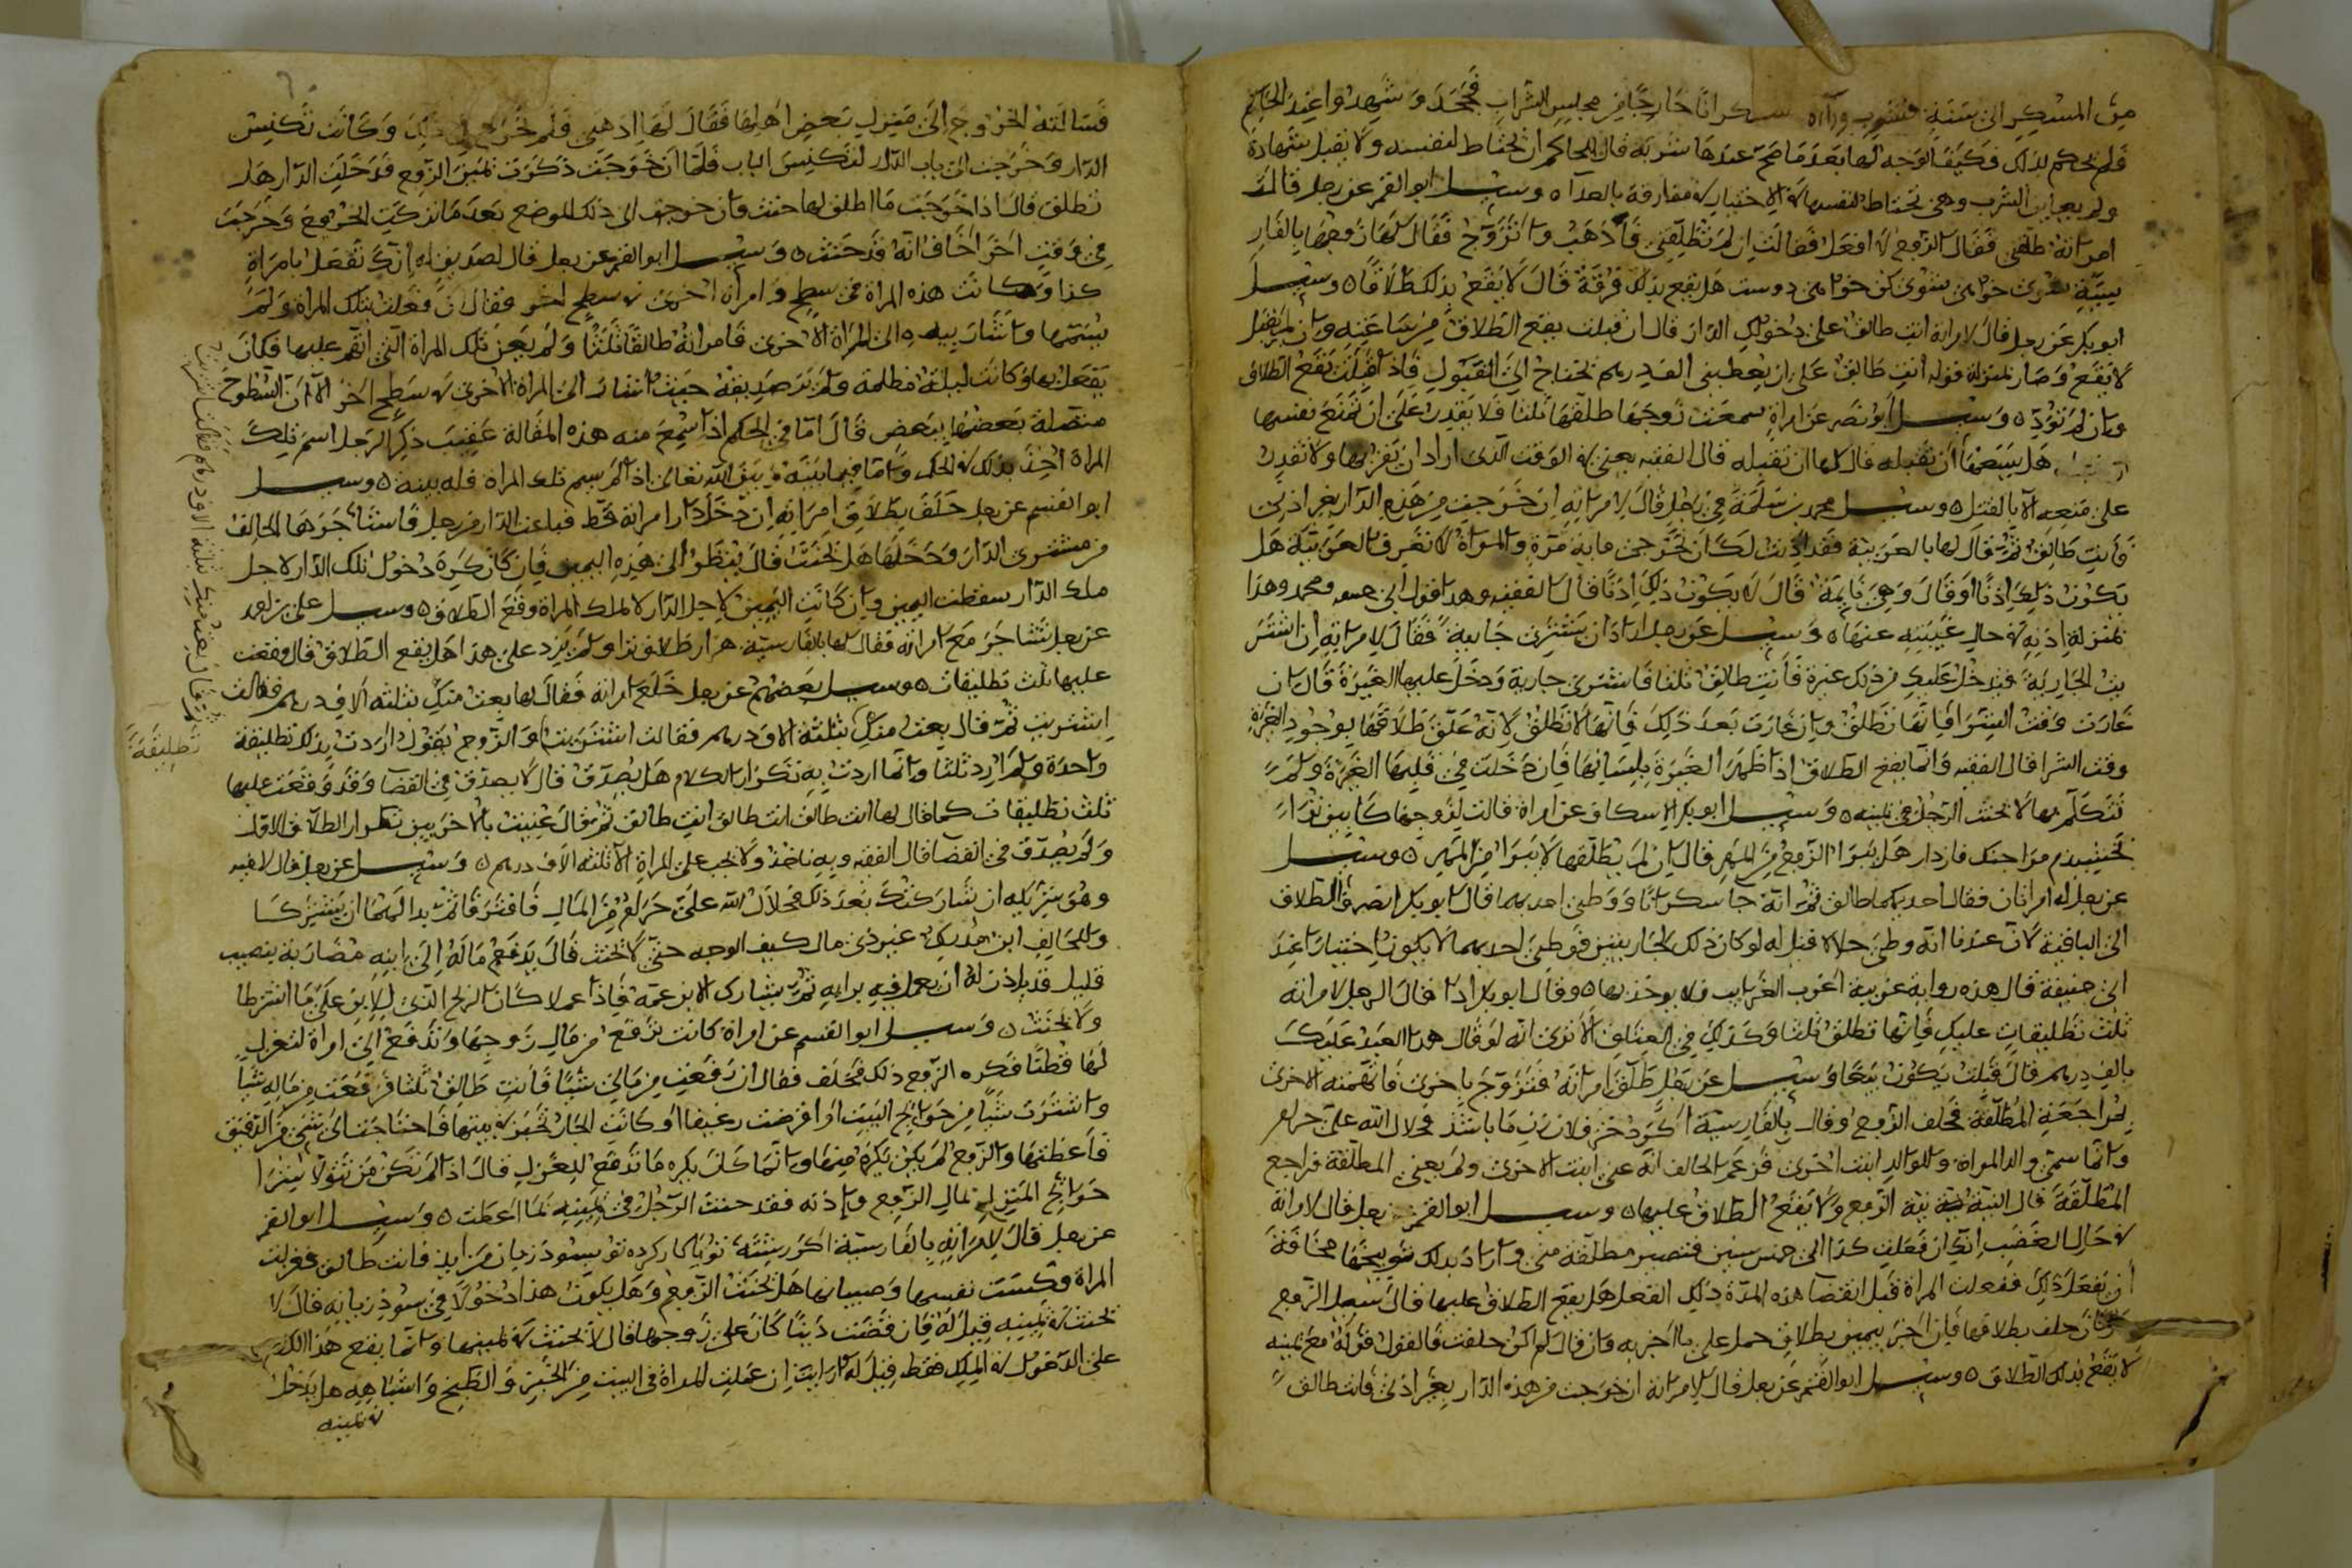 من المسكر الى سنة فشرب ورآه سكرانا خارجا من مجلس الشراب فجحد وشهدوا عند الحاكم
فلم يحكم بذلك فكيف الوجه لها بعد ما صح عندها شربه قال للحاكم ان يحتاط لنفسه ولا يقبل شهادة
ولم يعاين الشرب وهي تحتاط لنفسها في الاختيار في مفارقة بالفدا ٥ وسئل ابو القسم عن رجل قالت
امراته طلقني فقال الزوج لا افعل فقالت ان لم تطلقني فاذهب واتزوج فقال لها زوجها بالفار
سية هل يقع بذلك فرقة قال لا يقع بذلك طلاقا ٥ وسئل
ابو بكر عن رجل قال لامراته انت طالق على دخولك الدار قال ان قبلت يقع الطلاق من ساعته وان لم تقبل
لا يقع وصار بمنزلة قوله انت طالق على ان تعطيني الف درهم تحتاج الى القبول فاذا قبلت يقع الطلاق
وان لم تؤد ٥ وسئل ابو نصر عن امراة سمعت زوجها طلقها ثلثا فلا يقدر على ان تمنع نفسها
هل يسعها ان تقتله قال لها ان تقتله قال الفقيه يعني في الوقت الذي اراد ان يقربها ولا تقدر
على منعه الا بالقتل ٥ وسئل محمد بن سلمة في رجل قال لامراته ان خرجت من هذه الدار بغير اذني
فانت طالق ثم قال لها بالعربية فقد اذنت لك ان تخرجي ماية مرة والمراة لا تعرف العربية هل
يكون ذلك اذنا او قال وهي نايمة قال لا يكون ذلك اذنا قال الفقيه وهذا قول ابي حنيفة ومحمد وهذا
بمنزلة اذنه في حال غيبته عنها ٥ وسئل عن رجل اراد ان يشتري جارية فقال لامراته ان اشتر
يت الجارية فيدخل عليك من ذلك غيرة فانت طالق ثلثا فاشترى جارية ودخل عليها الغيرة قال ان
غارت وقت الشرا فانها تطلق وان غارت بعد ذلك فانها لا تطلق لانه علق طلاقها بوجود الغيرة
وقت الشرا قال الفقيه وانما يقع الطلاق اذا ظهر الغيرة بلسانها فان دخلت في قلبها الغيرة ولم
تتكلم بها لا يحنث الرجل في يمينه ٥ وسئل ابو بكر الاسكاف عن امراة قالت لزوجها كابين ترا
بخشيدم مرا جنك فازدار هل يبرا الزوج من المهر قال ان لم يطلقها لا يبرا من المهر ٥ وسئل
عن رجل له امراتان فقال احديكما طالق ثم انه جا سكرانا ووطئ احديهما قال ابو بكر انصرف الطلاق
الى الباقية لان عندنا انه وطئ حلالا قيل له لو كان ذلك لجاريتين فوطئ احديهما لا يكون اختيارا عند
ابي حنيفة قال هذه رواية غريبة اغرب الغرايب فلا يوخذ بها ٥ وقال ابو بكر اذا قال الرجل لامراته
ثلث تطليقات عليك فانها تطلق ثلثا وكذلك في العتاق الا ترى انه لو قال هذا العبد عليك
بالف درهم قال قبلت يكون بيعا وسئل عن رجل طلق امراته فتزوج باخرى فاتهمته الاخرى
بمراجعة المطلقة فحلف الزوج وقال بالفارسية اكر دختر فلان زن ما باشد فحلال الله على حرام
وانما سمى والد المراة وللوالد ابنت اخرى فزعم الحالف انه عنى ابنت الاخرى ولم يعني المطلقة فراجع
المطلقة قال النية نية الزوج ولا يقع الطلاق عليها ٥ وسئل ابو القسم عن رجل قال لامراته
في حال الغضب انك ان فعلت كذا الى خمس سنين فتصير مطلقة مني واراد بذلك تخويفها مخافة
ان تفعل ذلك ففعلت المراة قبل انقضا هذه المدة ذلك الفعل هل يقع الطلاق عليها قال يسئل الزوج
هل كان حلف بطلاقها فان اخبر بيمين بطلاق حمل على ما اخبر به وان قال لم اكن حلفت فالقول قوله مع يمينه
لا يقع بذلك الطلاق ٥ وسئل ابو القسم عن رجل قال لامراته ان خرجت من هذه الدار بغير اذني فانت طالق
فسالته الخروج الى منزل بعض اهلها فقال لها اذهبي فلم تخرج في ذلك وكانت تكنس
الدار وخرجت الى باب الدار لتكنس الباب فلما ان خرجت ذكرت يمين الزوج فدخلت الدار هل
تطلق قال اذا خرجت ما اطلق لها حنث وان خرجت الى ذلك الموضع بعد ما تركت الخروج وخرجت
في وقت اخر اخاف انه قد حنث ٥ وسئل ابو القسم عن رجل قال لصديق له انك تفعل بامراة
كذا وكانت هذه المراة في سطح وامراة اخرى في سطح اخر فقال ان فعلت بتلك المراة ولم
يسمها واشار بيده الى المراة الاخرى فامراته طالق ثلثا ولم يعن تلك المراة التي اتهم عليها فكان
يفعل بها وكانت ليلة مظلمة ولم ير صديقه حيث اشار الى المراة الاخرى في سطح اخر الا ان السطوح
متصلة بعضها ببعض قال اما في الحكم اذا سمع منه هذه المقالة عقيب ذكر الرجل اسم تلك
المراة اخذ بذلك في الحكم واما فيما بينه وبين الله تعالى اذا لم يسم تلك المراة فله بينه ٥ وسئل
ابو القسم عن رجل حلف بطلاق امراته ان دخل دار امراته قط فباعت الدار من رجل فاستاجرها الحالف
من مشتري الدار ودخلها هل يحنث قال ينظر الى هذه اليمين فان كان كره دخول تلك الدار لاجل
ملك الدار سقطت اليمين وان كانت اليمين لاجل الدار لا لملك المراة وقع الطلاق ٥ وسئل علي بن احمد
عن رجل تشاجر مع امراته فقال لها بالفارسية هزار طلاق ترا ولم يزد على هذا هل يقع الطلاق قال وقعت
عليها ثلث تطليقات ٥ وسئل بعضهم عن رجل خلع امراته فقال لها بعت منك بثلثة الاف درهم فقالت
اشتريت ثم قال بعت منك بثلثة الاف درهم فقالت اشتريت والزوج يقول اردت بذلك تطليقة
واحدة ولم ارد ثلثا وانما اردت به تكرار الكلام هل يصدق قال لا يصدق في القضا وقد وقعت عليها
ثلث تطليقات كما قال لها انت طالق انت طالق انت طالق ثم قال عنيت بالاخريين تكرار الطلاق الاول
ولم يصدق في القضا قال الفقيه وبه ناخذ ولا يجب على المراة الا ثلثة الاف درهم ٥ وسئل عن رجل قال لابنه
وهو شريكه ان شاركتك بعد ذلك فحلال الله علي حرام من المال فافترقا ثم بدا لهما ان يشتركا
وللحالف ابن كيف الوجه حتى لا يحنث قال يدفع ماله الى ابنه مضاربة بنصيب
قليل قد ياذن له ان يعمل فيه برايه ثم يشارك الابن عمه فاذا عملا كان الربح الذي للابن على ما اشترطا
ولا يحنث ٥ وسئل ابو القسم عن امراة كانت ترفع من مال زوجها وتدفع الى امراة لتغزل
لها قطنا فكره الزوج ذلك فحلف فقال ان رفعت من مالي شيئا فانت طالق ثلثا فرفعت من ماله شيئا
واشترت شيئا من حوايج البيت او اقرضت رغيفا او كانت الجار تخبز في بيتها فاحتاجت الى شي من الدقيق
فاعطتها والزوج لم يكن يكره منها وانما كان يكره ما تدفع للغزل قال اذا لم تكن من تتولا شرا
حوايج المنزل بمال الزوج وباذنه فقد حنث الرجل في يمينه لما اعطت ٥ وسئل ابو القسم
عن رجل قال لامراته بالفارسية اكر رشته تو يا كار كرده تو بسود زيان من ايد فانت طالق فغزلت
المراة وكست نفسها وصبيانها هل يحنث الزوج وهل يكون هذا دخولا في سود زيانه قال لا
يحنث في يمينه قيل له فان قضت دينا كان على زوجها قال لا يحنث في يمينها وانما يقع هذا الكلام
على الدخول في الملك فقط قيل له ارايت ان عملت المراة في البيت من الخبز والطبخ واشباهه هل يدخل
في يمينه
تطليقة